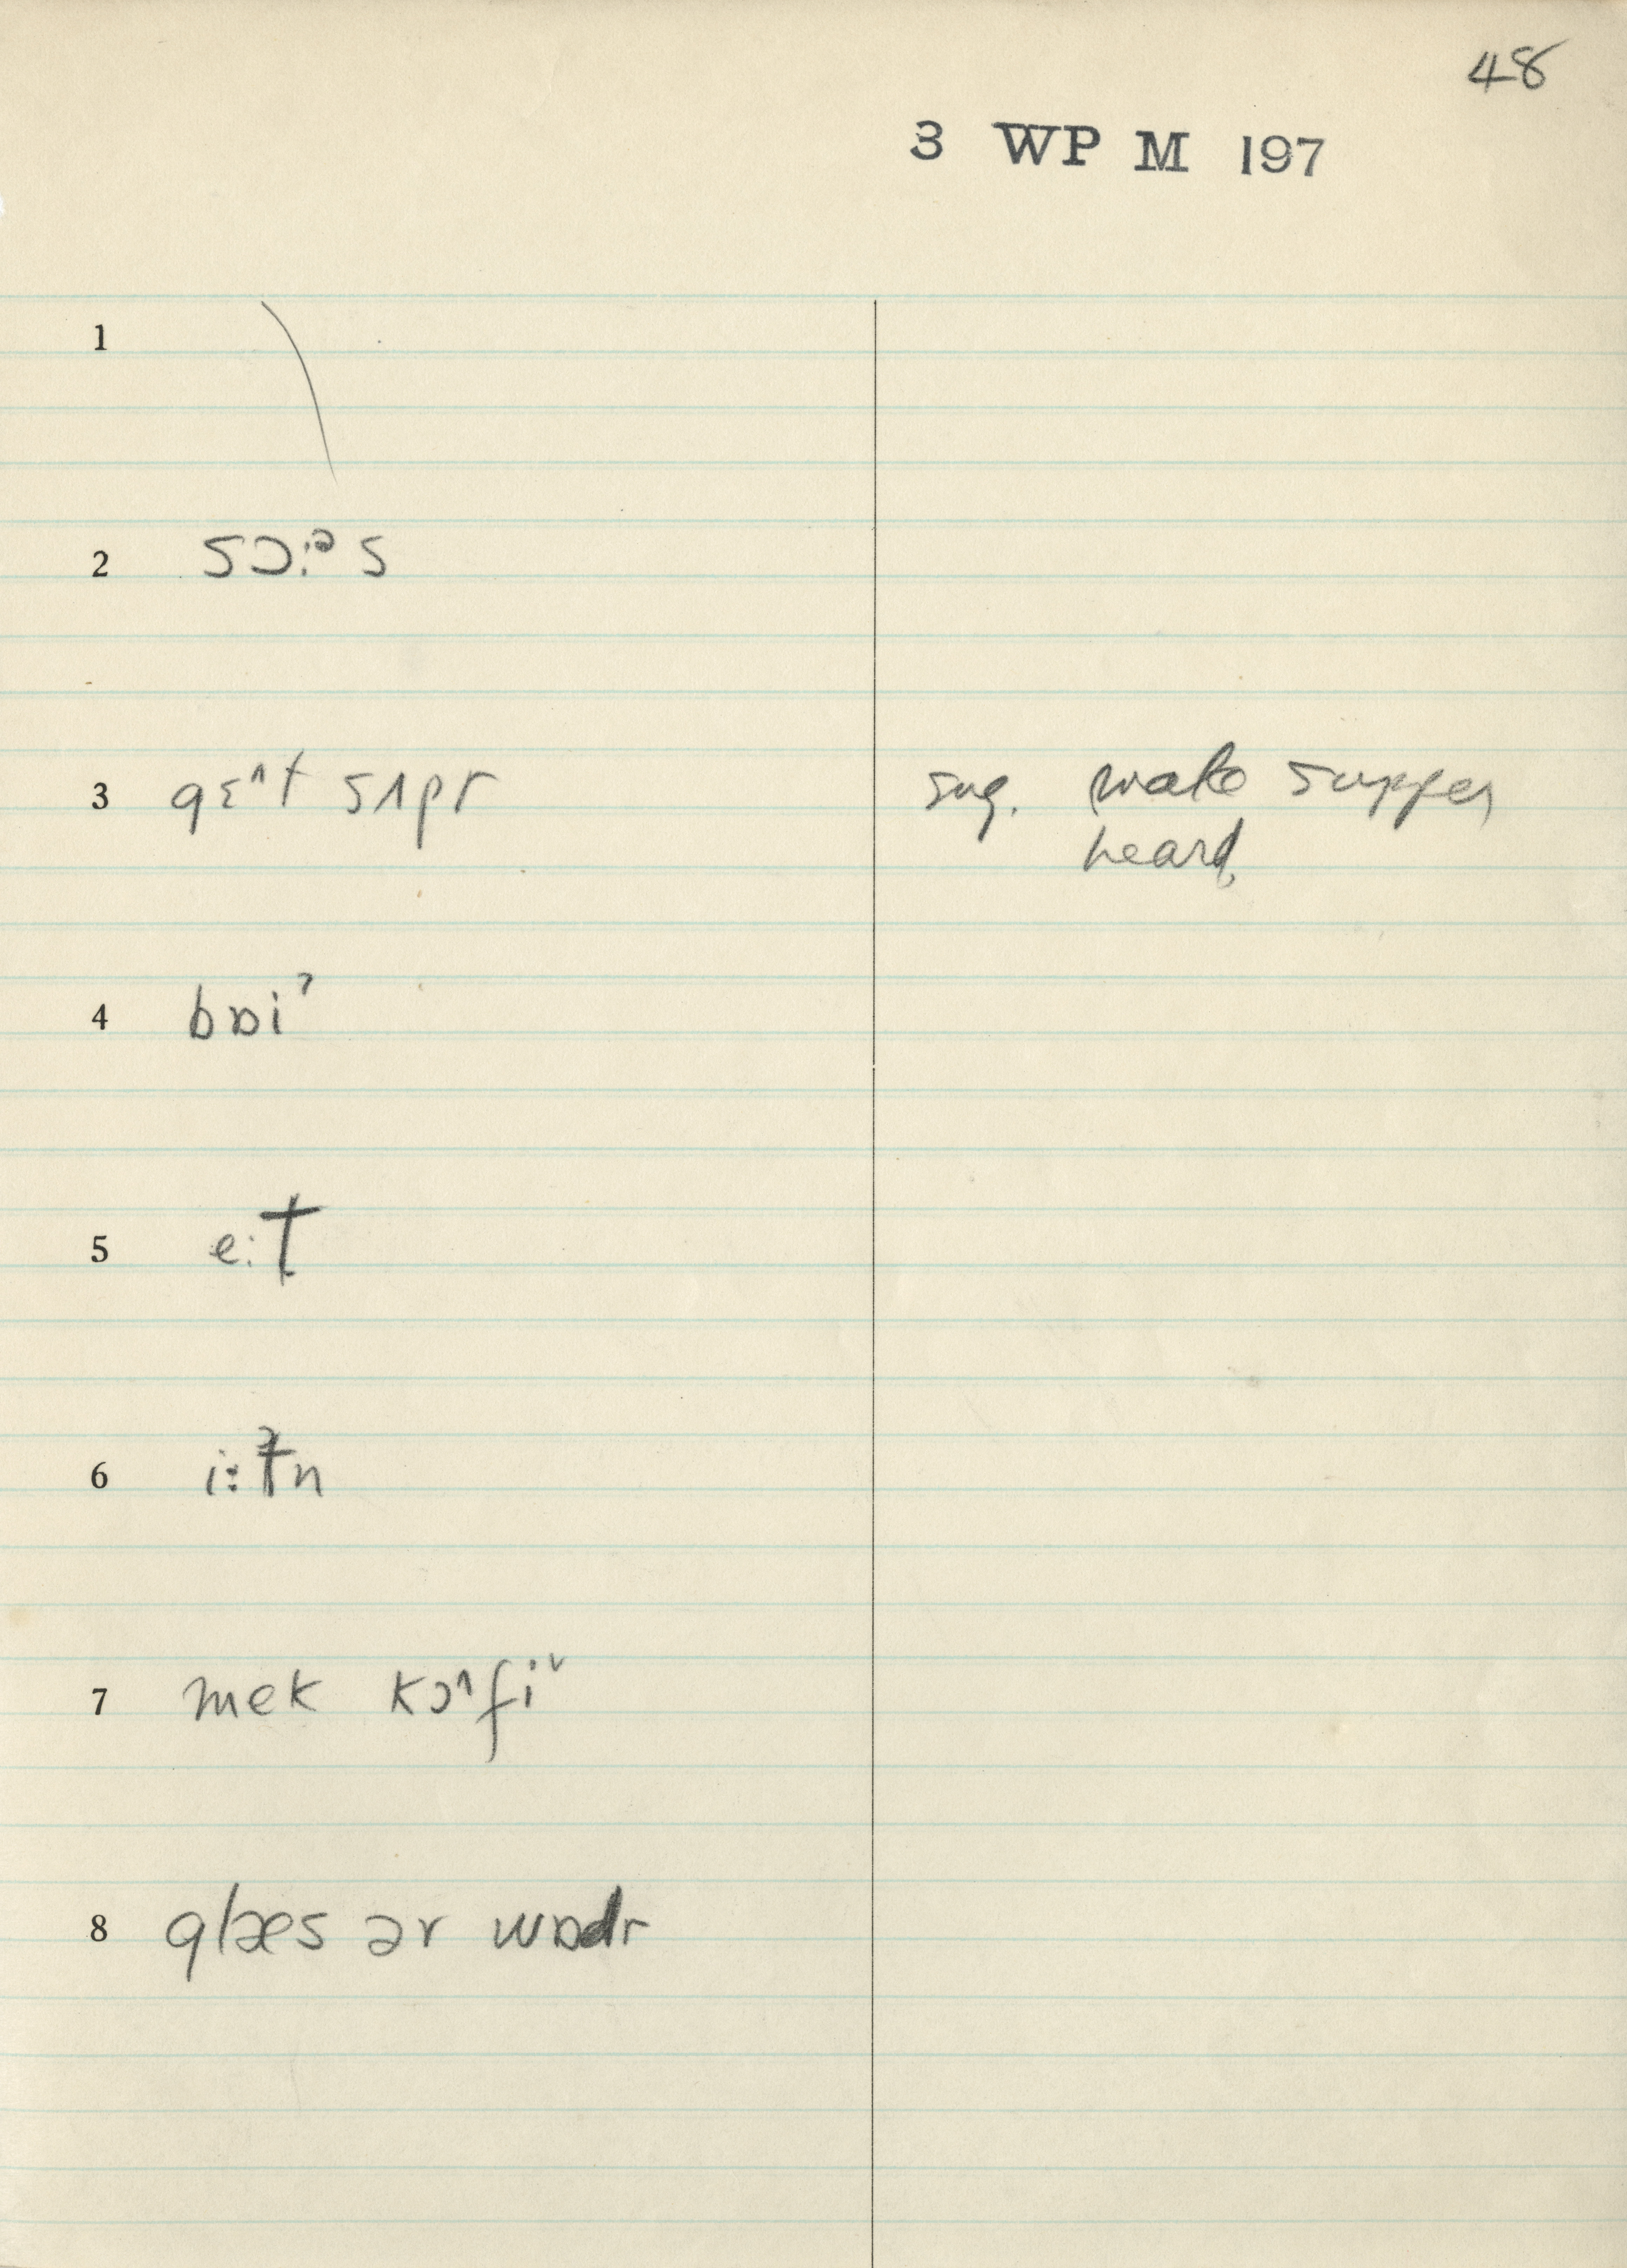 48
3 WP M 197
1
2 sɔ:ᵊs
3 gɛ^t sʌpr sug. make supper,
heard
4 bɒiˀ
5 e:t
6 i:tn
7 mek kɔ^fiᵛ
8 glæs ər wɒdr